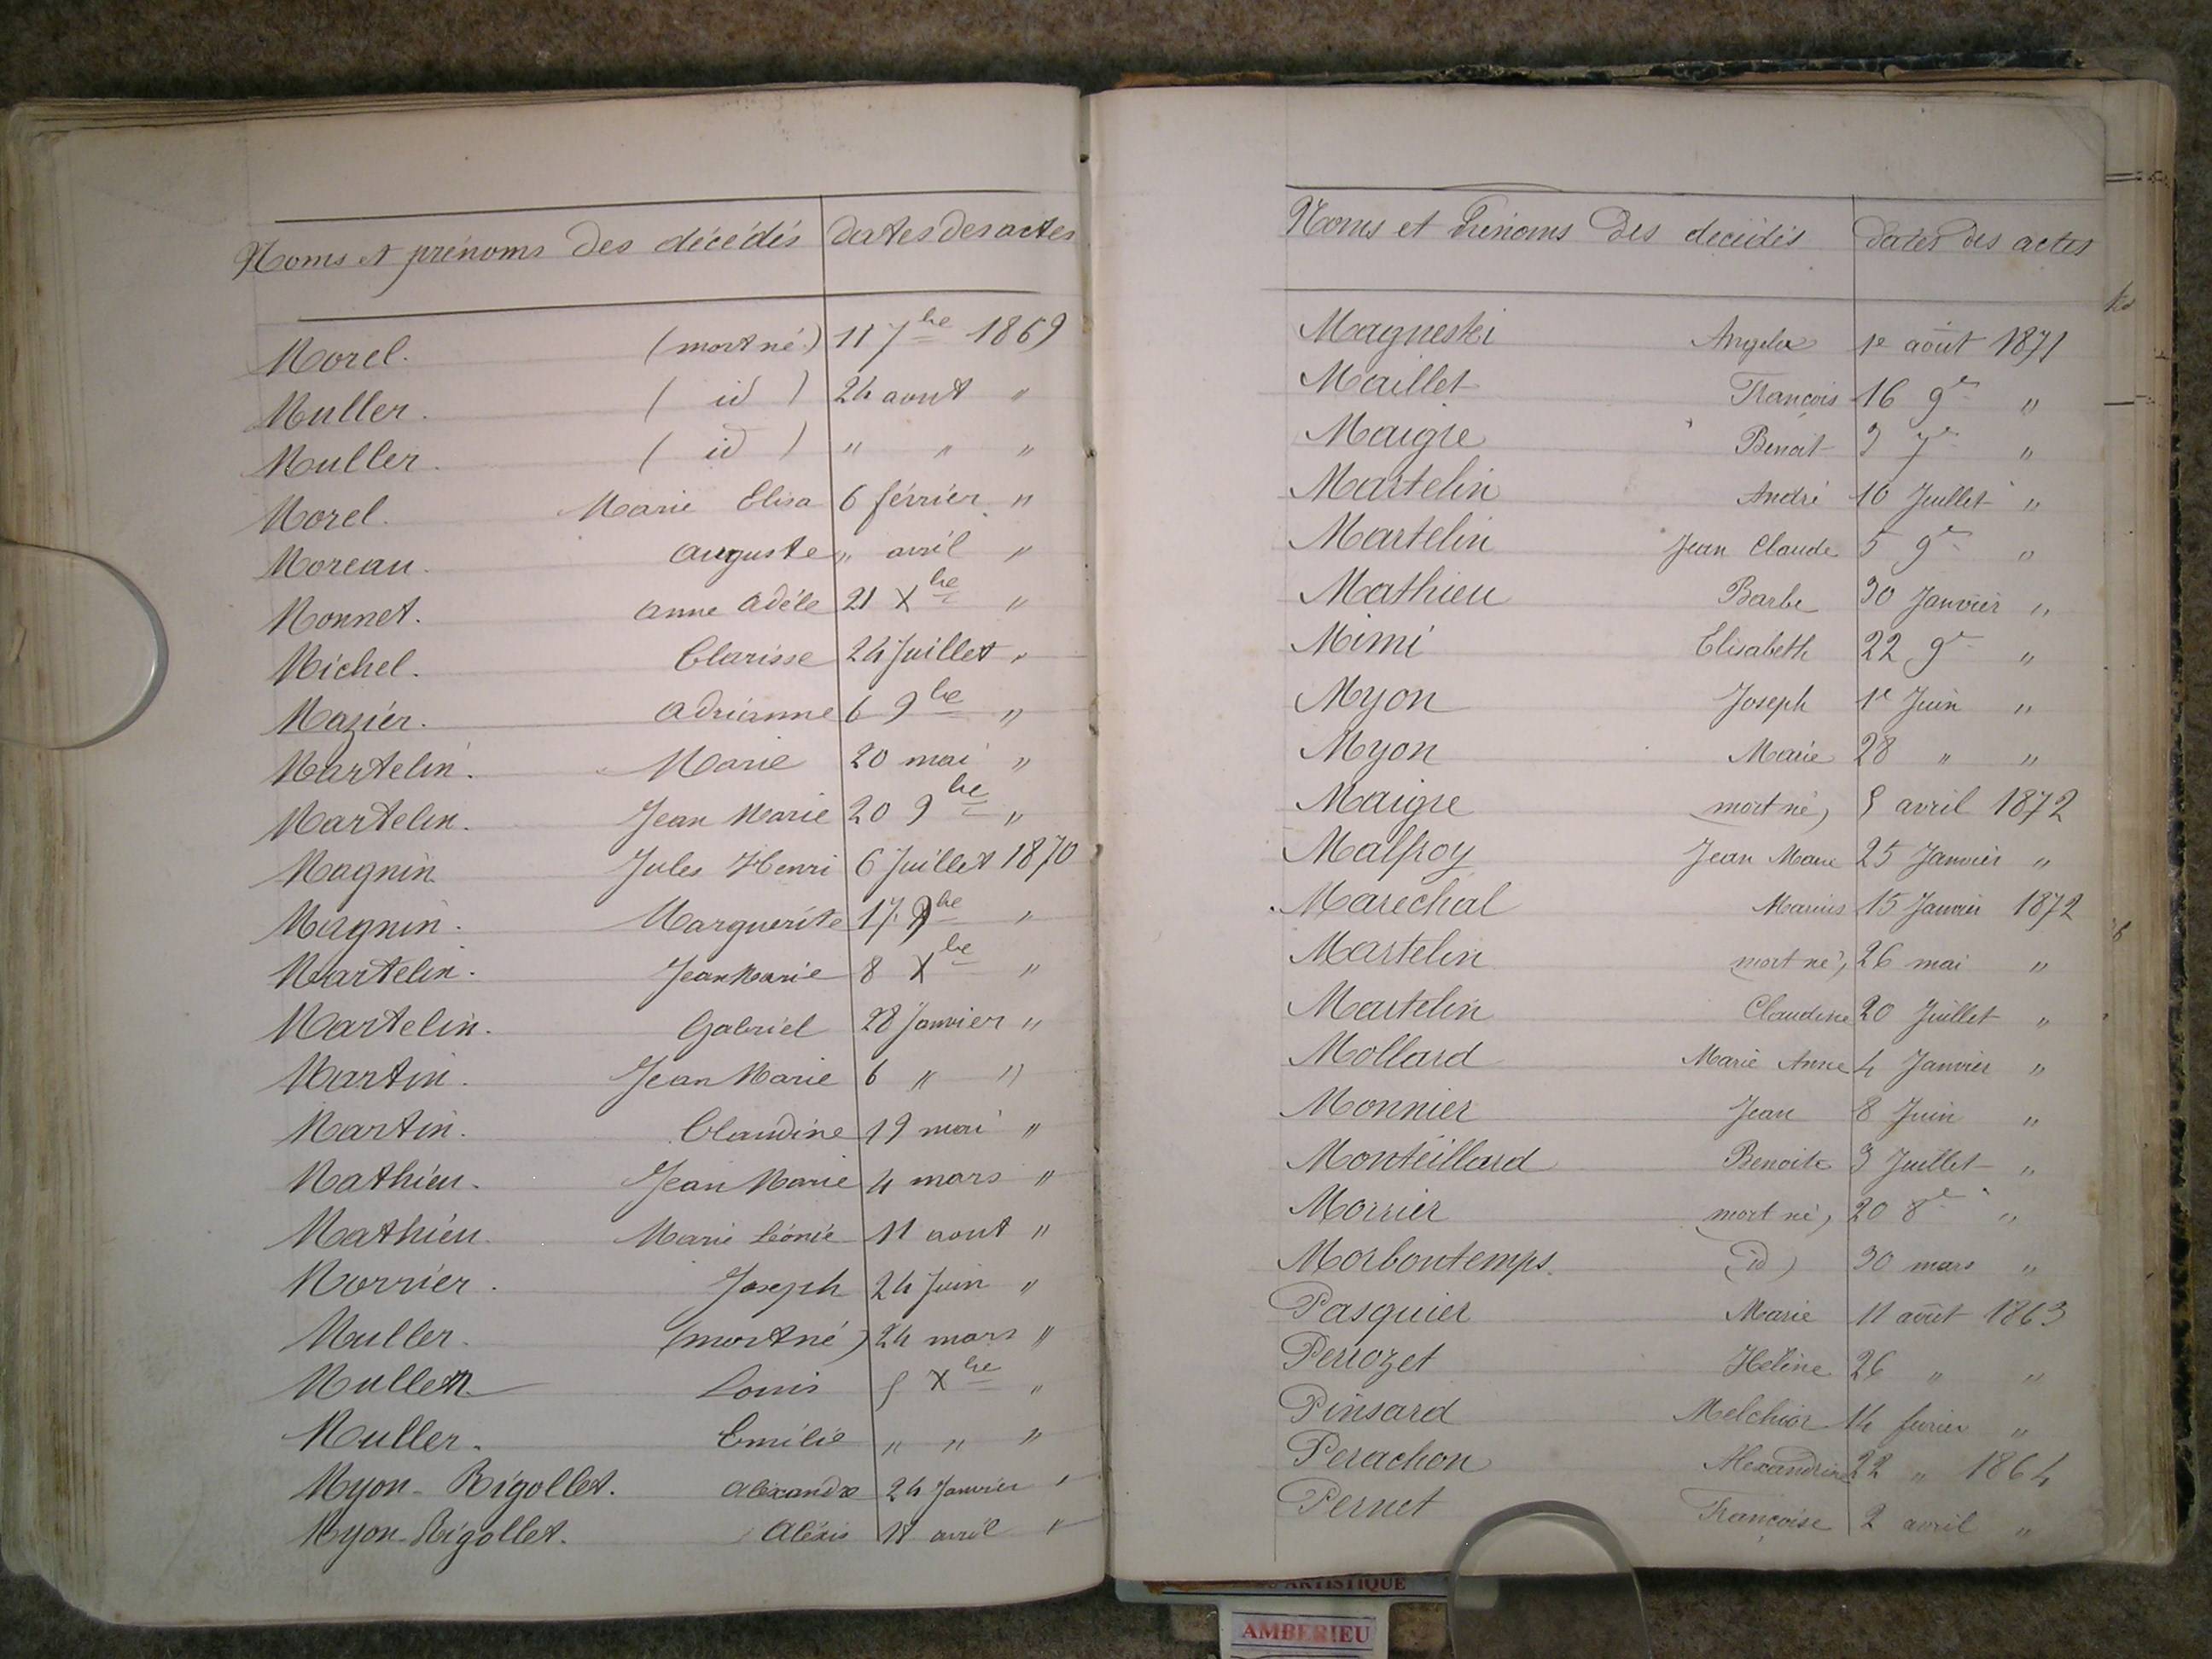 Noms et prénoms des décédés dates des actes
Morel. (mort né) 11 7bre 1869
Muller. ( id ) 24 aout "
Muller. ( id ) " " "
Morel. Marie Elisa 6 février "
Moreau. Auguste " avril "
Monnet. Anne Adèle 21 Xbre "
Michel. Clarisse 24 Juillet "
Mazier. Adrianne 6 9bre "
Martelin. Marie 20 mai "
Martelin. Jean Marie 20 9bre "
Magnin Jules Henri 6 Juillet 1870
Magnin. Marguerite 17 bre "
Martelin. Jean Marie 8 Xbre "
Martelin. Gabriel 28 Janvier "
Martin. Jean Marie 6 " "
Martin. Claudine 19 mai "
Mathieu. Jean Marie 4 mars "
Mathieu. Marie Léonie 11 aout "
Morrier. Joseph 24 Juin "
Muller. (mort né) 24 mars "
Muller Louis 5 Xbre "
Muller. Emilie " " "
Myon-Rigollet. Alexandre 24 Janvier "
Myon-Rigollet. Alexis 18 avril "
Noms et Prénoms des décédés dates des actes
Magneski Angela 1e août 1871
Maillet François 16 9e "
Maigre Benoit 3 7e "
Martelin André 10 Juillet "
Martelin Jean Claude 5 9e "
Mathieu Barbe 30 Janvier "
Mimi Elisabeth 22 9e "
Myon Joseph 1e Juin "
Myon Marie 28 " "
Maigre mort né) 5 avril 1872
Malfroy Jean Marie 25 Janvier "
Marechal Marius 15 Janvier 1872
Martelin mort né) 26 mai "
Martelin Claudine 20 Juillet "
Mollard Marie Anne 4 Janvier "
Monnier Jean 8 Juin "
Monteillard Benoite 3 Juillet "
Morrier mort né) 20 8e "
Morbontemps (id) 30 mars "
Pasquier Marie 11 août 1863
Perrozet Hélène 26 " "
Pinsard Melchior 14 fevrier "
Perachon Alexandrine 22 " 1864
Pernet Françoise 2 avril "
ARTISTIQUE
AMBERIEU